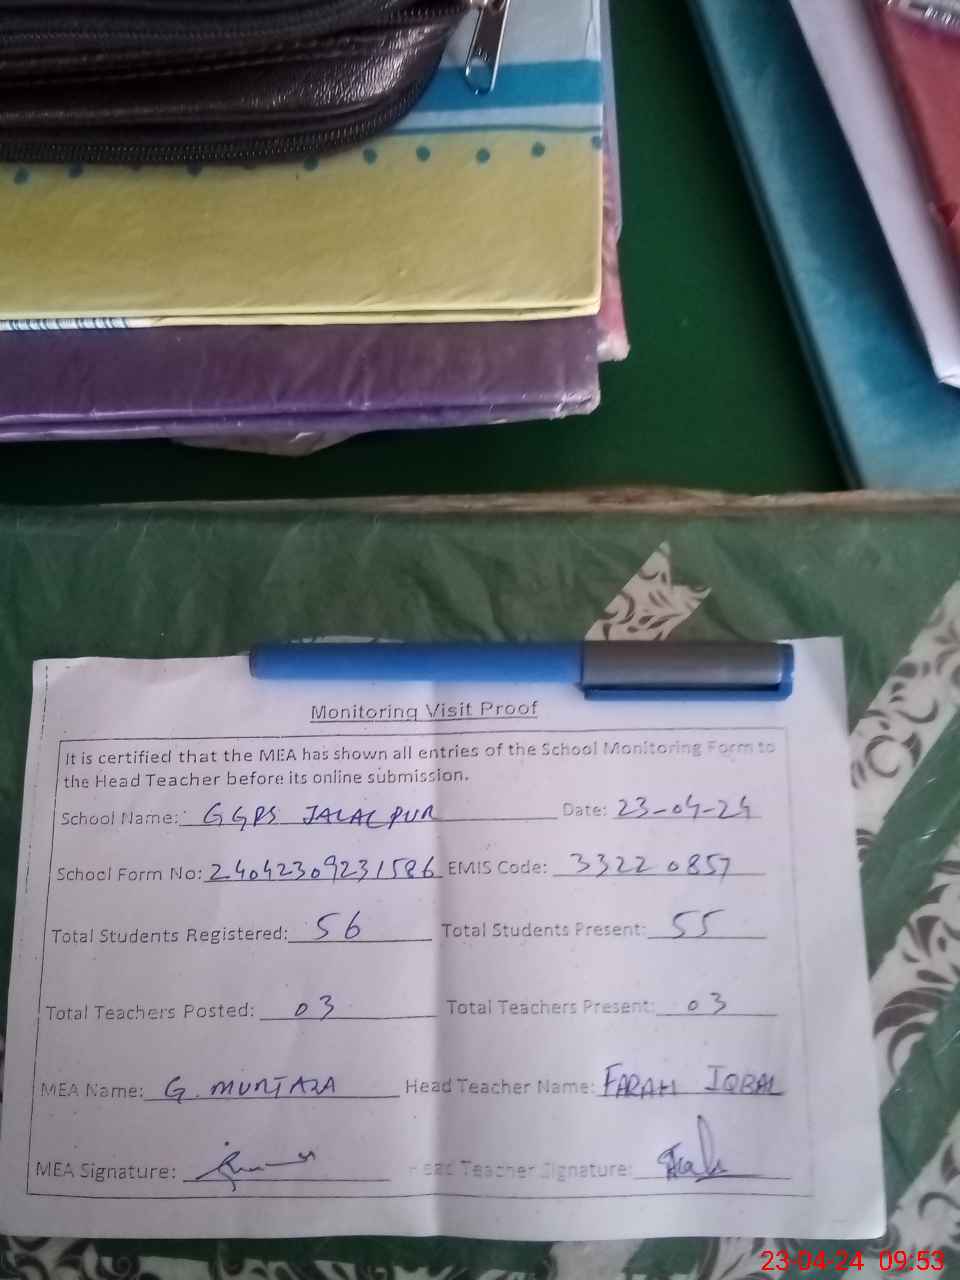 Monitoring Visit Proof
It is certified that the MEA has shown all entries of the School Monitoring Form to
the Head Teacher before its online submission.
School Name: GGPS JALALPUR Date: 23-04-24
School Form No: 24042309231586 EMIS Code: 33220857
Total Students Registered: 56 Total Students Present: 55
Total Teachers Posted: 03 Total Teachers Present: 03
MEA Name: G. MURTAZA Head Teacher Name: FARAH IQBAL
MEA Signature: Head Teacher Signature:
23-04-24 09:53